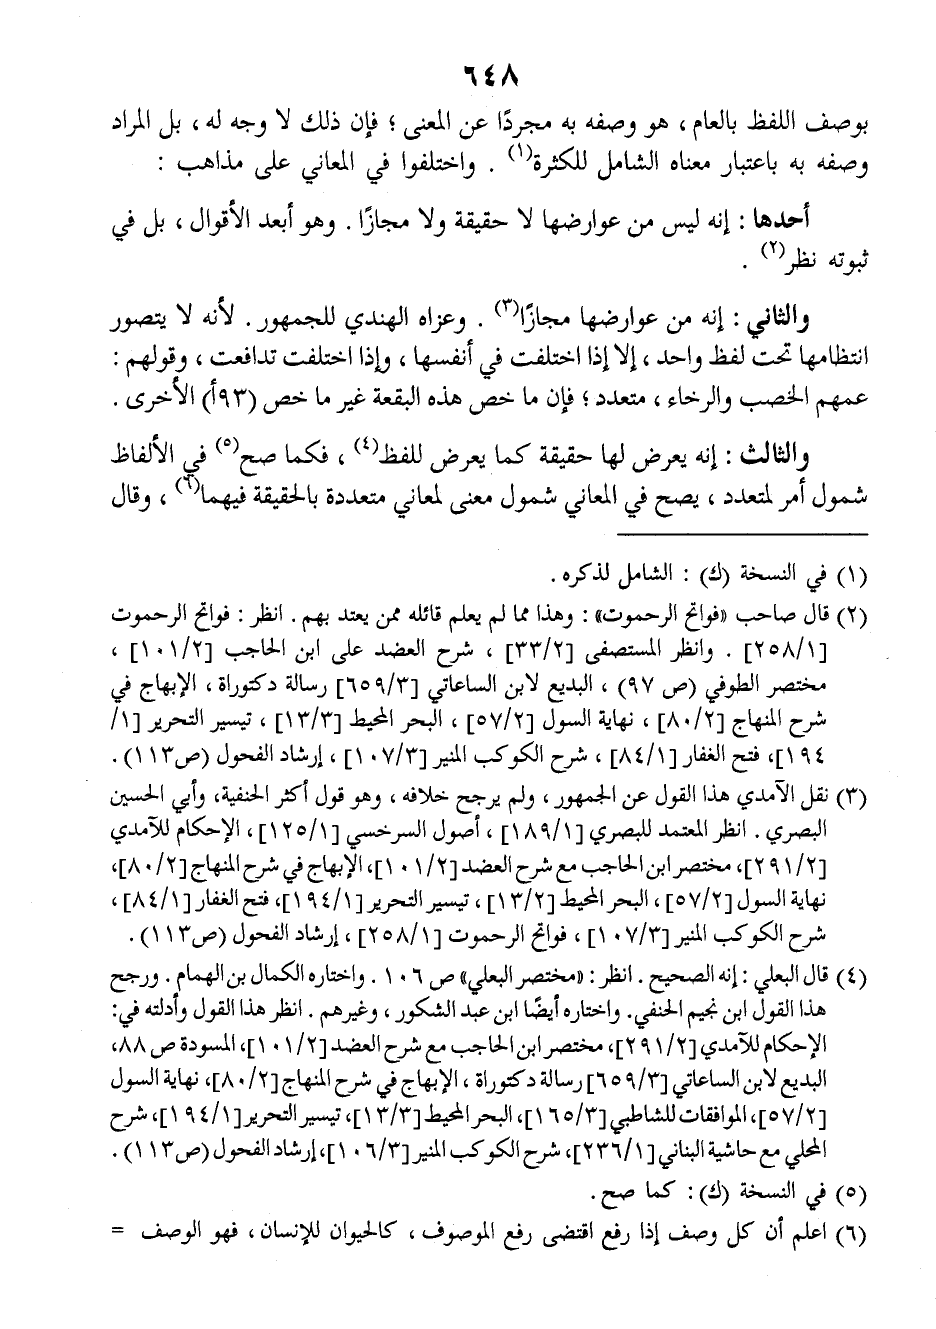 ٦٤٨
بوصف اللفظ بالعام ، هو وصفه به مجردًا عن المعنى ؛ فإن ذلك لا وجه له ، بل المراد
وصفه به باعتبار معناه الشامل للكثرة(١) . واختلفوا في المعاني على مذاهب :
أحدها : إنه ليس من عوارضها لا حقيقة ولا مجازًا . وهو أبعد الأقوال ، بل في
ثبوته نظر(٢) .
والثاني : إنه من عوارضها مجازًا(٣) . وعزاه الهندي للجمهور . لأنه لا يتصور
انتظامها تحت لفظ واحد ، إلا إذا اختلفت في أنفسها ، وإذا اختلفت تدافعت ، وقولهم :
عمهم الخصب والرخاء ، متعدد ؛ فإن ما خص هذه البقعة غير ما خص (٩٣أ) الأخرى .
والثالث : إنه يعرض لها حقيقة كما يعرض للفظ(٤) ، فكما صح(٥) في الألفاظ
شمول أمر لمتعدد ، يصح في المعاني شمول معنى لمعاني متعددة بالحقيقة فيهما(٦) ، وقال
(١) في النسخة (ك) : الشامل لذكره .
(٢) قال صاحب «فواتح الرحموت» : وهذا مما لم يعلم قائله ممن يعتد بهم . انظر : فواتح الرحموت
[٢٥٨/١] . وانظر المستصفى [٣٣/٢] ، شرح العضد على ابن الحاجب [١٠١/٢] ،
مختصر الطوفي (ص ٩٧) ، البديع لابن الساعاتي [٦٥٩/٣] رسالة دكتوراة ، الإبهاج في
شرح المنهاج [٨٠/٢] ، نهاية السول [٥٧/٢] ، البحر المحيط [١٣/٣] ، تيسير التحرير [١/
١٩٤]، فتح الغفار [٨٤/١] ، شرح الكوكب المنير [١٠٧/٣] ، إرشاد الفحول (ص١١٣) .
(٣) نقل الآمدي هذا القول عن الجمهور ، ولم يرجح خلافه ، وهو قول أكثر الحنفية، وأبي الحسين
البصري . انظر المعتمد للبصري [١٨٩/١] ، أصول السرخسي [١٢٥/١] ، الإحكام للآمدي
[٢٩١/٢]، مختصر ابن الحاجب مع شرح العضد [١٠١/٢]، الإبهاج في شرح المنهاج [٨٠/٢]،
نهاية السول [٥٧/٢] ، البحر المحيط [١٣/٢] ، تيسير التحرير [١٩٤/١]، فتح الغفار [٨٤/١] ،
شرح الكوكب المنير [١٠٧/٣] ، فواتح الرحموت [٢٥٨/١] ، إرشاد الفحول (ص١١٣) .
(٤) قال البعلي : إنه الصحيح . انظر : «مختصر البعلي» ص ١٠٦ . واختاره الكمال بن الهمام . ورجح
هذا القول ابن نجيم الحنفي. واختاره أيضًا ابن عبد الشكور ، وغيرهم . انظر هذا القول وأدلته في:
الإحكام للآمدي [٢٩١/٢]، مختصر ابن الحاجب مع شرح العضد [١٠١/٢]، المسودة ص ٨٨،
البديع لابن الساعاتي [٦٥٩/٣] رسالة دكتوراة ، الإبهاج في شرح المنهاج [٨٠/٢]، نهاية السول
[٥٧/٢]، الموافقات للشاطبي [١٦٥/٣]، البحر المحيط [١٣/٣]، تيسير التحرير [١٩٤/١]، شرح
المحلي مع حاشية البناني [٢٣٦/١]، شرح الكوكب المنير [١٠٦/٣]، إرشاد الفحول (ص١١٣) .
(٥) في النسخة (ك): كما صح .
(٦) اعلم أن كل وصف إذا رفع اقتضى رفع الموصوف ، كالحيوان للإنسان ، فهو الوصف =